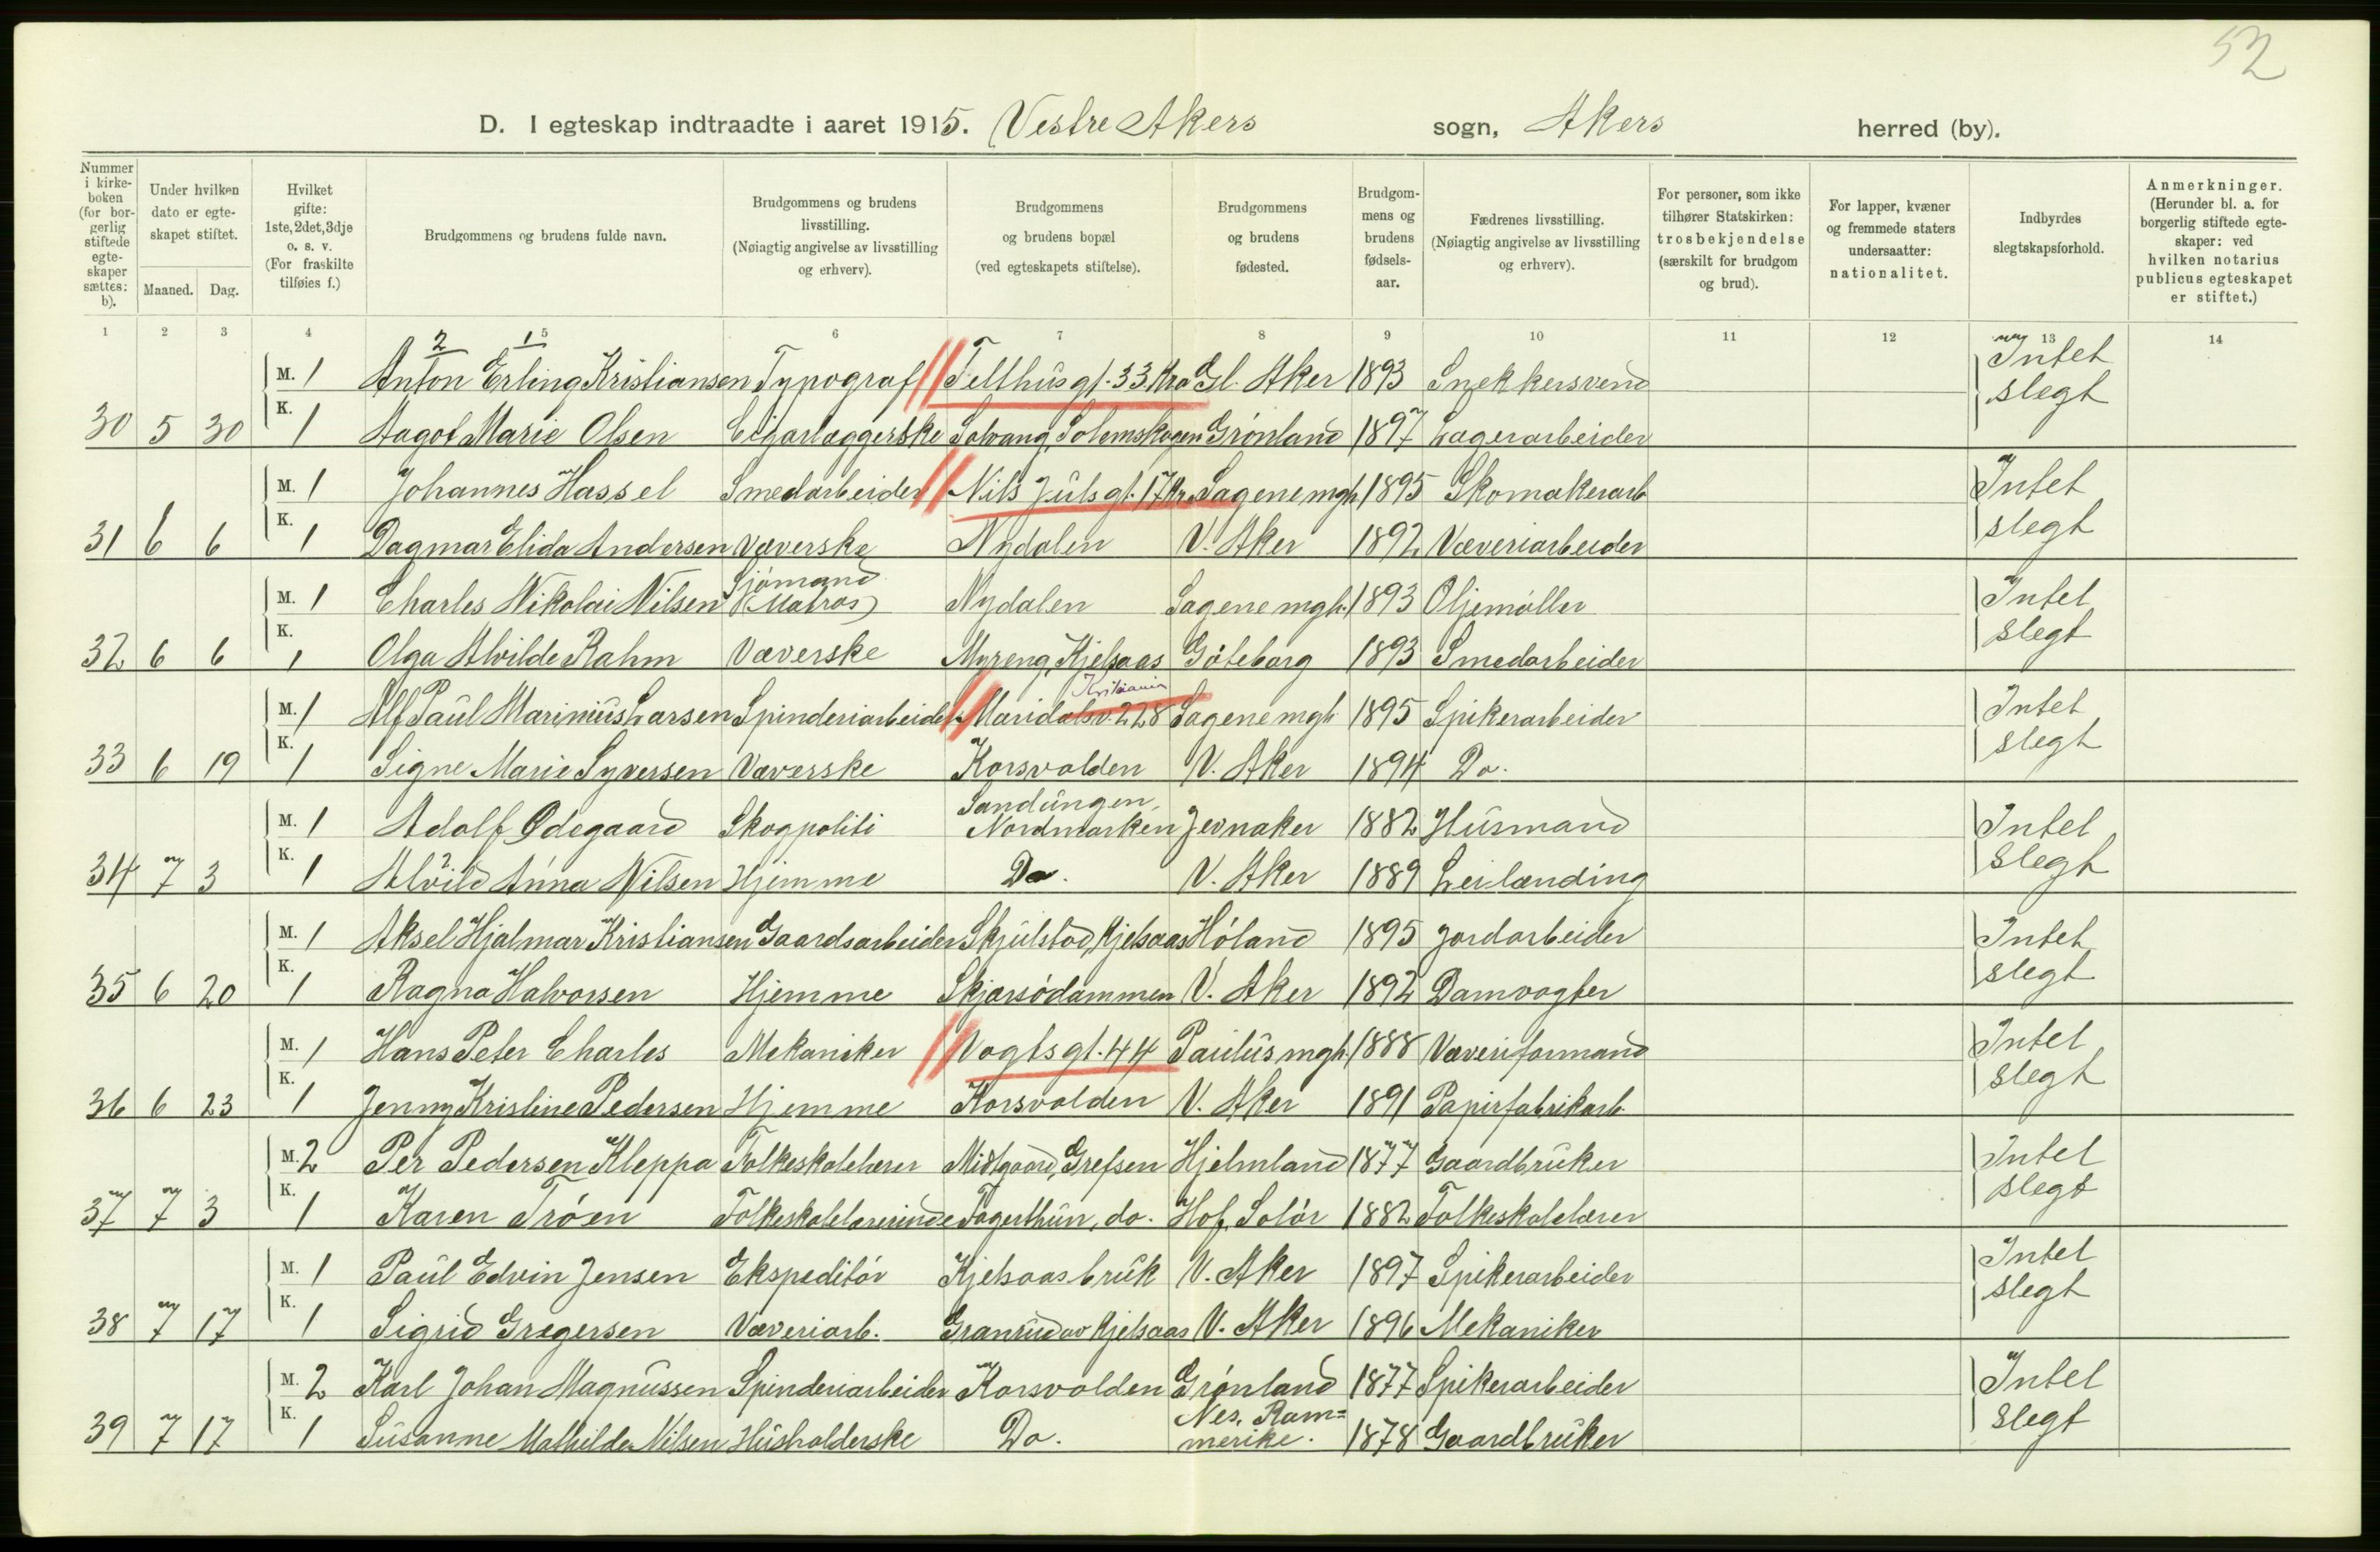 52
D. I egteskap indtraadte i aaret 1915. Vestre Akers sogn, Akers herred (by).
Nummer i kirkeboken (for borgerlig stiftede egteskaper sættes: b).
Under hvilken dato er egteskapet stiftet.
Maaned. Dag.
Hvilket gifte: 1ste, 2det, 3dje o. s. v. (For fraskilte tilføies f.)
Brudgommens og brudens fulde navn.
Brudgommens og brudens livsstilling. (Nøiagtig angivelse av livsstilling og erhverv).
Brudgommens og brudens bopæl (ved egteskapets stiftelse).
Brudgommens og brudens fødested.
Brudgommens og brudens fødselsaar.
Fædrenes livsstilling. (Nøiagtig angivelse av livsstilling og erhverv).
For personer, som ikke tilhører Statskirken: trosbekjendelse (særskilt for brudgom og brud).
For lapper, kvæner og fremmede staters undersaatter: nationalitet.
Indbyrdes slegtskapsforhold.
Anmerkninger. (Herunder bl. a. for borgerlig stiftede egteskaper: ved hvilken notarius publicus egteskapet er stiftet.)
1 2 3 4 5 6 7 8 9 10 11 12 13 14
2 1
M. 1 Anton Erling Kristiansen Typograf Telthusgt. 33. Kra Gl. Aker 1893 Snekkersvend Intet
30 5 30 K. 1 Aagot Marie Olsen Cigarlæggerske Solvang, Solemskogen Grønland 1897 Lagerarbeider slegt
M. 1 Johannes Hassel Smedarbeider Nils Juls gt. 17 Kra Sagene mgh. 1895 Skomakerarb Intet
31 6 6 K. 1 Dagmar Elida Andersen Væverske Nydalen V. Aker 1892 Væveriarbeider slegt
M. 1 Charles Nikolai Nilsen Sjømand (Matros) Nydalen Sagene mgh. 1893 Oljemøller Intet
32 6 6 K. 1 Olga Alvilde Rahm Væverske Myreng, Kjelsaas Gøteborg 1893 Smedarbeider slegt
Kristiania
M. 1 Alf Paul Marinius Larsen Spinderiarbeider Maridalsv. 228 Sagene mgh 1895 Spikerarbeider Intet
33 6 19 K. 1 Signe Marie Syversen Væverske Korsvolden V. Aker 1894 Do. slegt
M. 1 Adolf Ødegaard Skogpoliti Sandungen, Nordmarken Jevnaker 1882 Husmand Intet
34 7 3 K. 1 Alvild Anna Nilsen Hjemme Do. V. Aker 1889 Leilænding slegt
M. 1 Aksel Hjalmar Kristiansen Gaardsarbeider Skjulstad, Kjelsaas Høland 1895 Jordarbeider Intet
35 6 20 K. 1 Ragna Halvorsen Hjemme Skjærsødammen V. Aker 1892 Damvogter slegt
M. 1 Hans Peter Charles Mekaniker Vogts gt. 44 Paulus mgh. 1888 Væveriformand Intet
36 6 23 K. 1 Jenny Kristine Pedersen Hjemme Korsvolden V. Aker 1891 Papirfabrikarb. slegt
M. 2 Per Pedersen Kleppa Folkeskolelærer Midtgaard, Grefsen Hjelmland 1877 Gaardbruker Intet
37 7 3 K. 1 Karen Trøen Folkeskolelærerinde Fagerthun, do. Hof, Solør 1882 Folkeskolelærer slegt
M. 1 Paul Edvin Jensen Ekspeditør Kjelsaas bruk V. Aker 1897 Spikerarbeider Intet
38 7 17 K. 1 Sigrid Gregersen Væveriarb. Granrud av Kjelsaas V. Aker 1896 Mekaniker slegt
M. 2 Karl Johan Magnussen Spinderiarbeider Korsvolden Grønland 1877 Spikerarbeider Intet
39 7 17 K. 1 Susanne Mathilde Nilsen Husholderske Do. Nes, Rommerike. 1878 Gaardbruker slegt